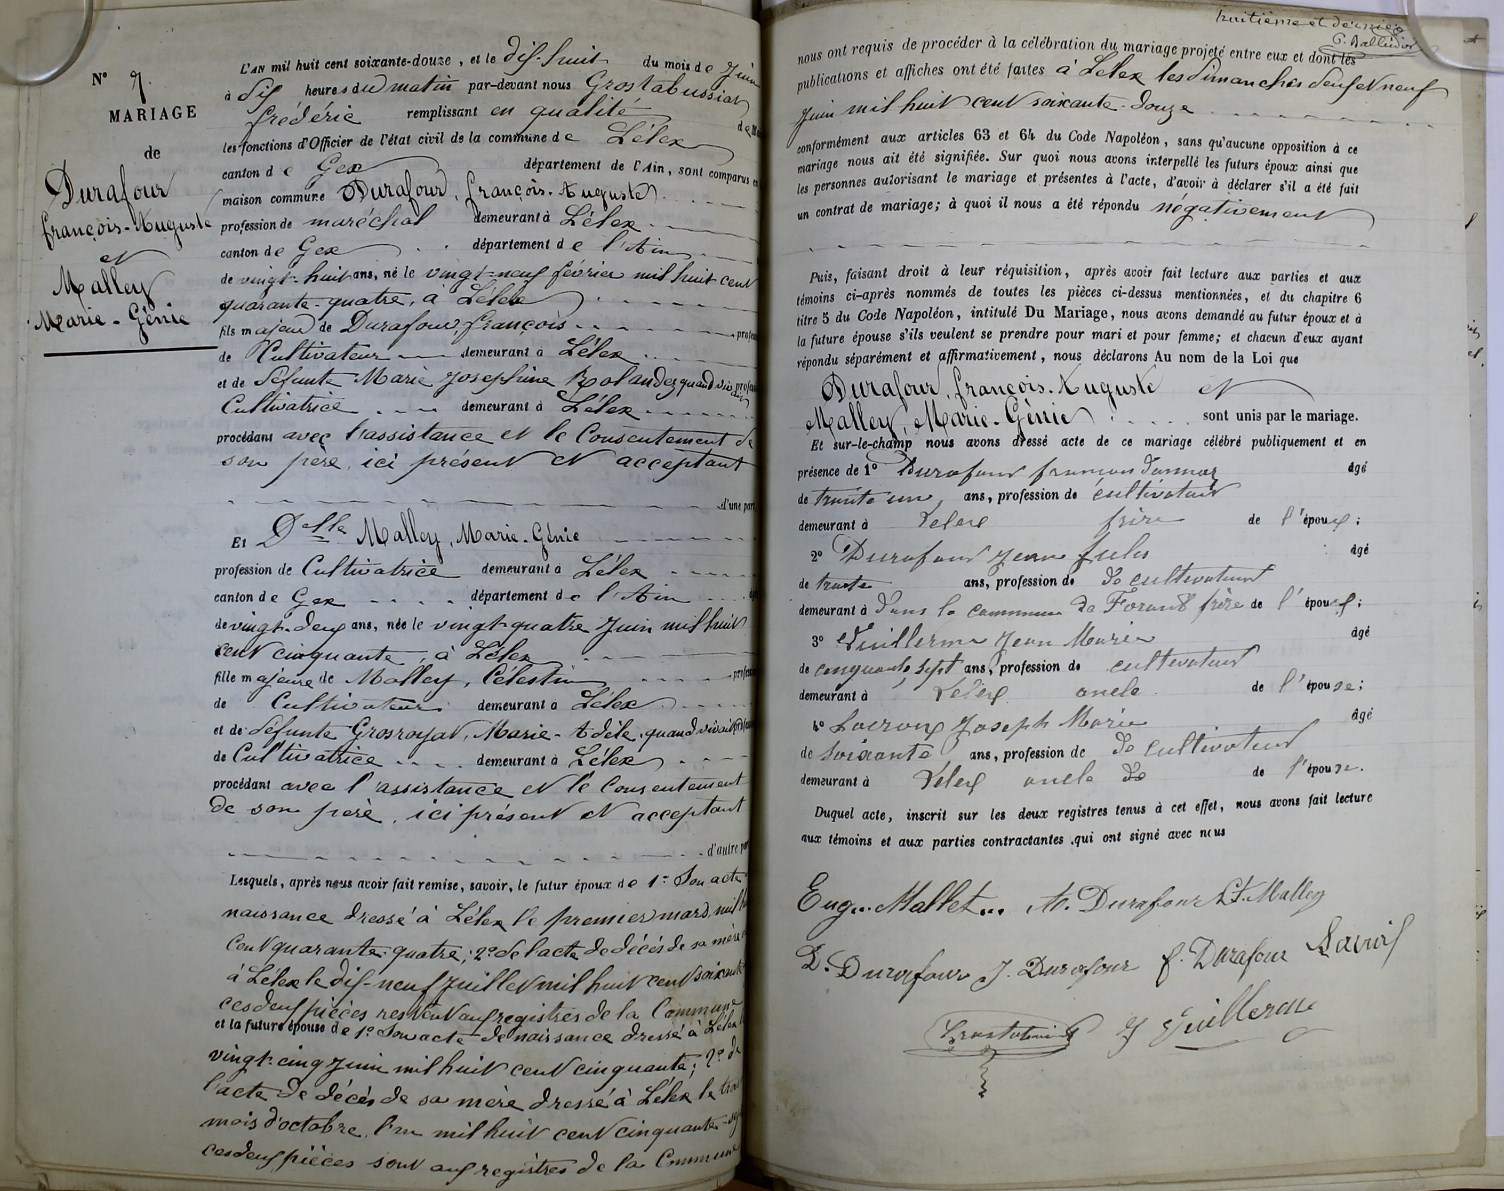 N° 7.
MARIAGE
de
Durafour
françois-Auguste
et
Malley
Marie-Génie
L'AN mil huit cent soixante-douze, et le dix-huit du mois de Juin
à dix heures du matin par-devant nous Grostabussiat
frédéric remplissant en qualité de
les fonctions d'Officier de l'état civil de la commune de Lélex
canton de Gex département de l'Ain, sont comparus en
maison commune Durafour, françois-Auguste
profession de maréchal demeurant à Lélex
canton de Gex département de l'Ain
de vingt-huit ans, né le vingt-neuf février mil huit cent
quarante-quatre, à Lélex
fils majeur de Durafour, françois
de Cultivateur demeurant à Lélex
et de défunte Marie Josephine Rolandez quand vivait
Cultivatrice demeurant à Lélex
procédant avec l'assistance et le Consentement de
son père, ici présent et acceptant
d'une part
Et Delle Malley, Marie-Génie
profession de Cultivatrice demeurant à Lélex
canton de Gex département de l'Ain
de vingt-deux ans, née le vingt-quatre Juin mil huit
cent cinquante, à Lélex
fille majeure de Malley, Célestin
de Cultivateur demeurant à Lélex
et de défunte Grosroyat, Marie-Adèle, quand vivait
de Cultivatrice demeurant à Lélex
procédant avec l'assistance et le Consentement
de son père, ici présent et acceptant
d'autre part
Lesquels, après nous avoir fait remise, savoir, le futur époux de 1° Son acte
naissance dressé à Lélex le premier mars mil
cent quarante-quatre; 2° de l'acte de décès de sa mère
à Lélex le dix-neuf Juillet mil huit cent soixante
ces deux pièces restent aux registres de la Commune
et la future épouse de 1° Son acte de naissance dressé à Lélex
vingt-cinq Juin mil huit cent cinquante; 2° de
l'acte de décès de sa mère dressé à Lélex le trois
mois d'octobre l'an mil huit cent cinquante-
ces deux pièces sont aux registres de la Commune
huitième et dernier
nous ont requis de procéder à la célébration du mariage projeté entre eux et dont les
publications et affiches ont été faites à Lélex les dimanches deux et neuf
Juin mil huit cent soixante-douze
conformément aux articles 63 et 64 du Code Napoléon, sans qu'aucune opposition à ce
mariage nous ait été signifiée. Sur quoi nous avons interpellé les futurs époux ainsi que
les personnes autorisant le mariage et présentes à l'acte, d'avoir à déclarer s'il a été fait
un contrat de mariage; à quoi il nous a été répondu négativement
Puis, faisant droit à leur réquisition, après avoir fait lecture aux parties et aux
témoins ci-après nommés de toutes les pièces ci-dessus mentionnées, et du chapitre 6
titre 5 du Code Napoléon, intitulé Du Mariage, nous avons demandé au futur époux et à
la future épouse s'ils veulent se prendre pour mari et pour femme; et chacun d'eux ayant
répondu séparément et affirmativement, nous déclarons Au nom de la Loi que
Durafour, françois-Auguste et
Malley, Marie-Génie sont unis par le mariage.
Et sur-le-champ nous avons dressé acte de ce mariage célébré publiquement et en
présence de 1° Durafour françois âgé
de trente un, ans, profession de cultivateur
demeurant à Lélex frère de l'époux;
2° Durafour Jean Jules âgé
de trente ans, profession de de cultivateur
demeurant à dans la commune de frère de l'époux;
3° Vuillerme Jean Marie âgé
de cinquante sept ans, profession de cultivateur
demeurant à Lélex oncle de l'épouse;
4° Lacroix Joseph Marie âgé
de Soixante ans, profession de de cultivateur
demeurant à Lélex oncle de de l'épouse.
Duquel acte, inscrit sur les deux registres tenus à cet effet, nous avons fait lecture
aux témoins et aux parties contractantes qui ont signé avec nous
Eug.. Mallet... A. Durafour Ct. Malley
D. Durafour J. Durafour f. Durafour Lacroix
J Vuillerme